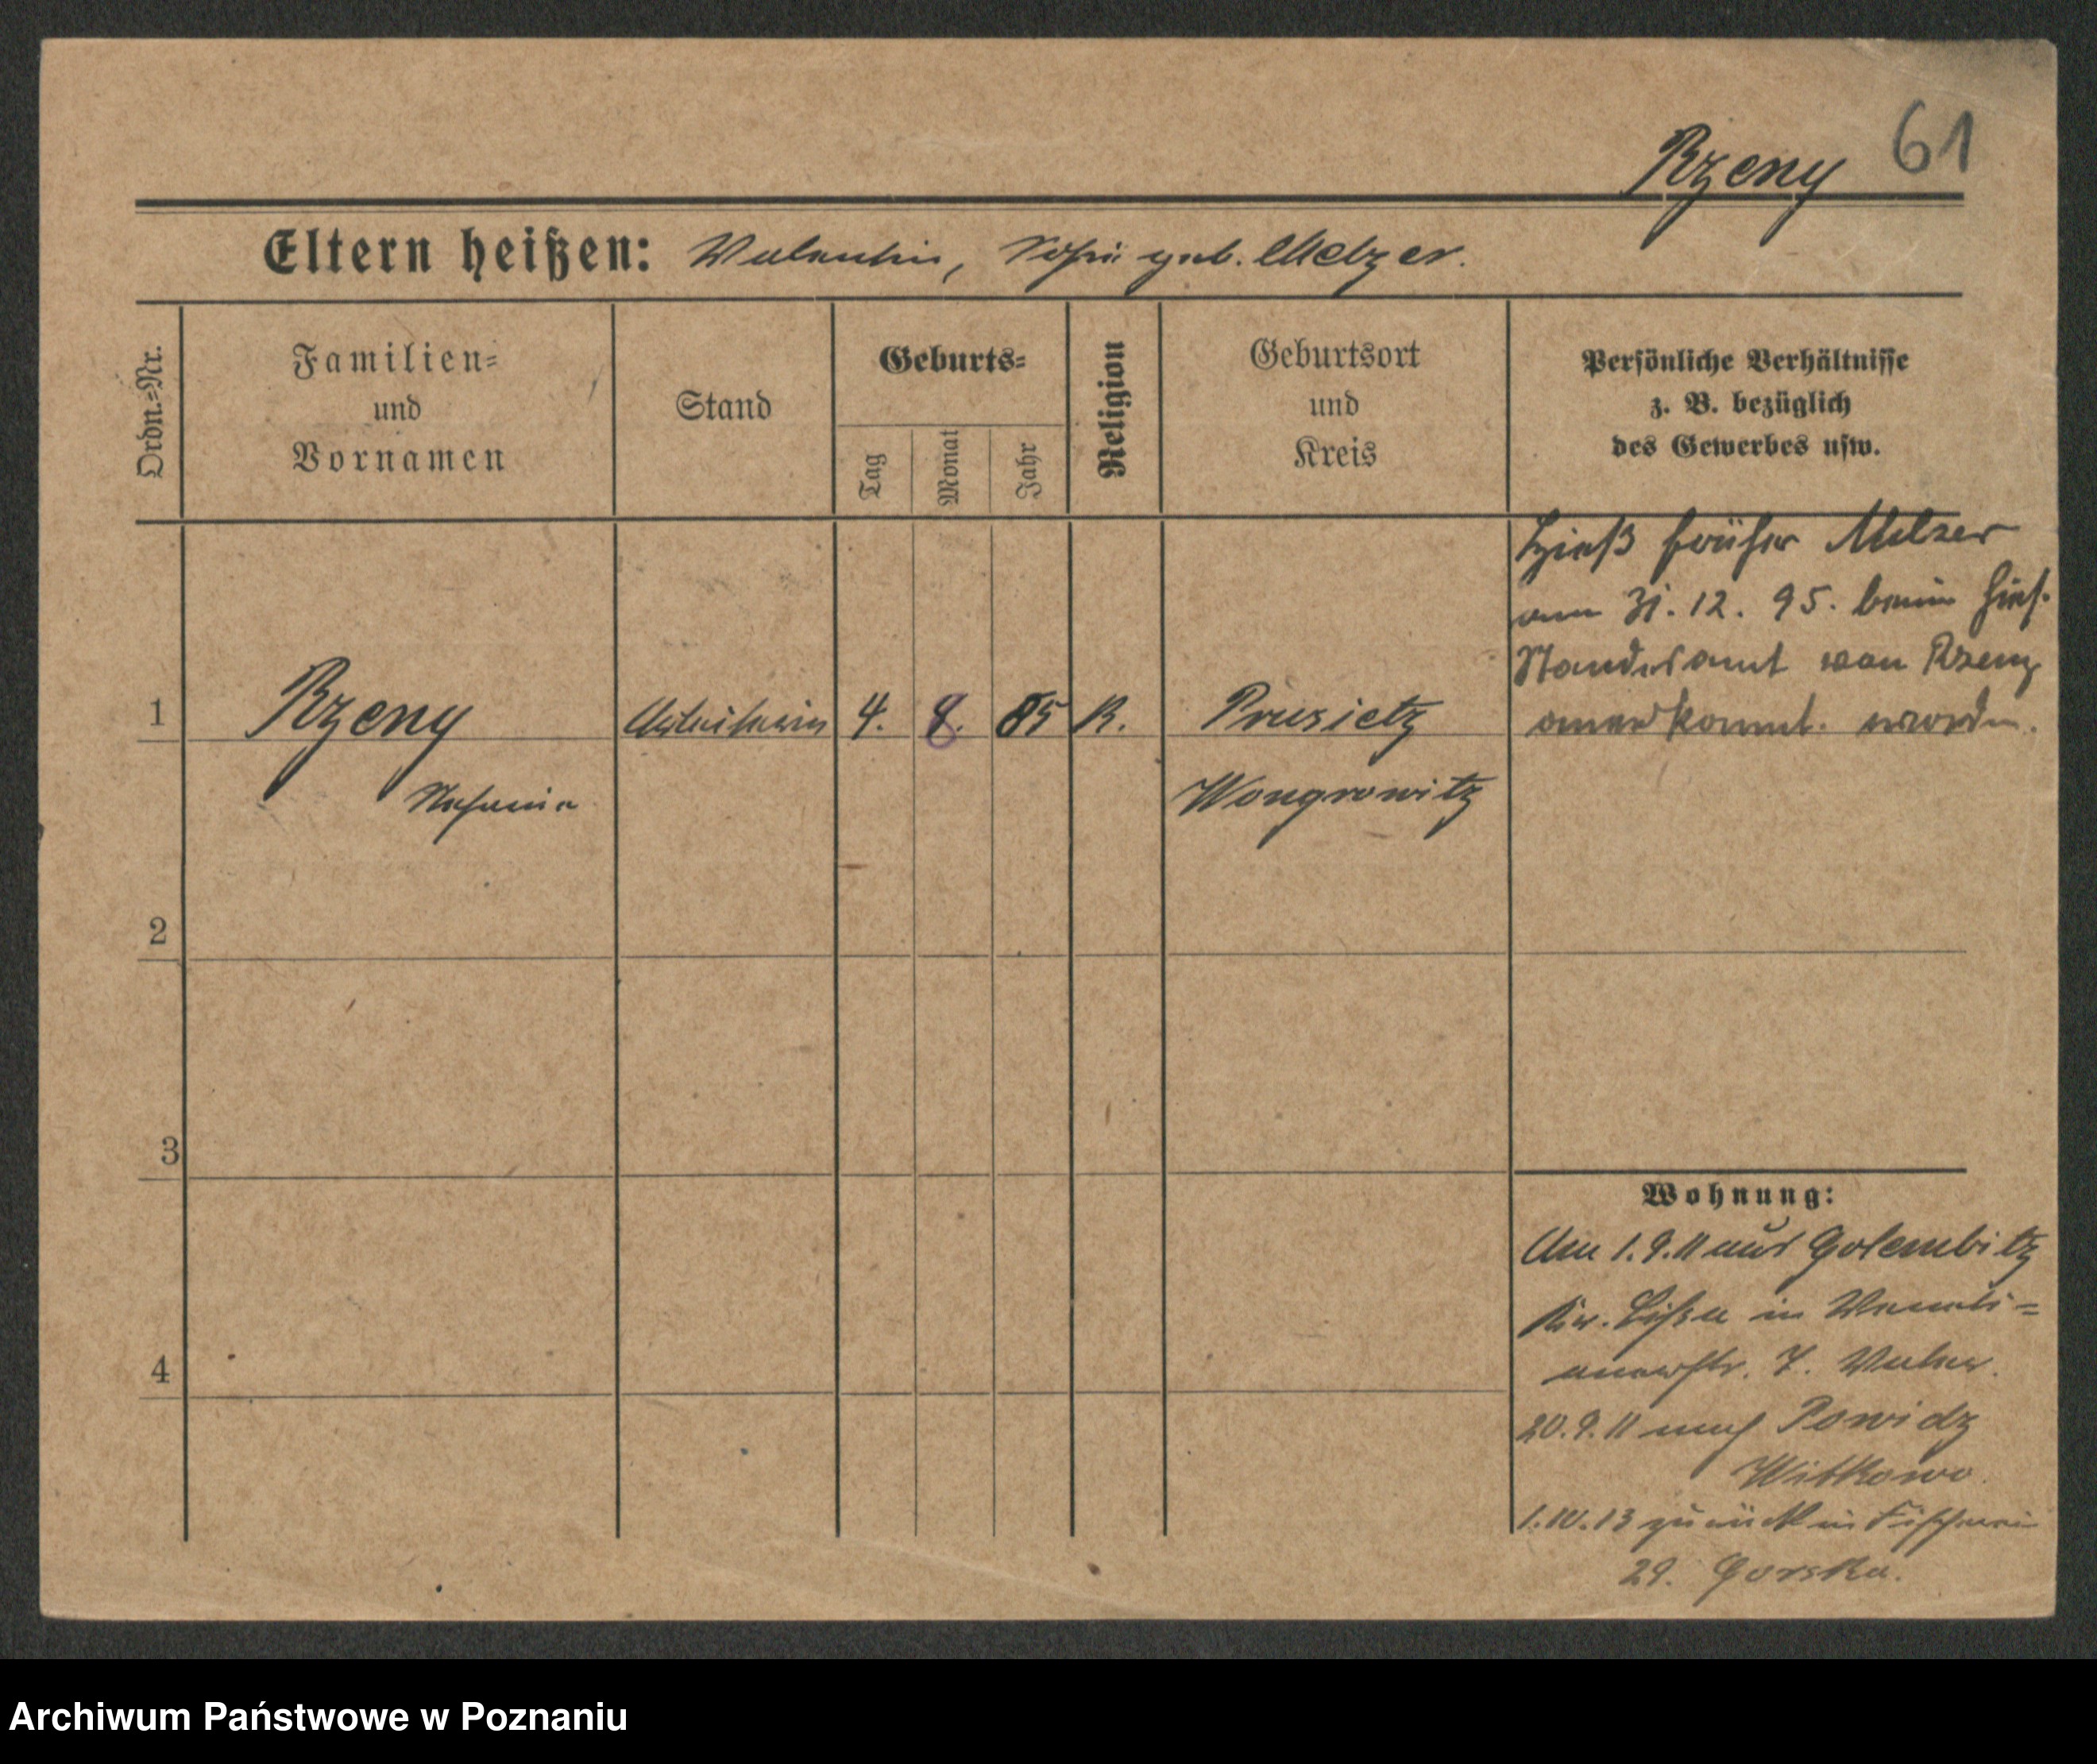 Rzeny 61
Eltern heißen: Valentin, Sofie geb. Melzer.
Ordn.-Nr.
Familien-
und
Vornamen
Stand
Geburts-
Tag
Monat
Jahr
Religion
Geburtsort
und
Kreis
Persönliche Verhältnisse
z. B. bezüglich
des Gewerbes usw.
Hieß früher Melzer
am 31.12.95. beim hies.
Standesamt von Rzeny
anerkannt. worden.
1 Rzeny Arbeiterin 4. 8. 85 K. Prusietz
Stefania Wongrowitz
2
3
4
Wohnung:
Am 1.9.11 aus Golembitz
Krs. in
7.
20.9.11 nach Powidz
Witkowo.
1.10.13 zurück in Fischerei
29. Gorska.
Archiwum Państwowe w Poznaniu